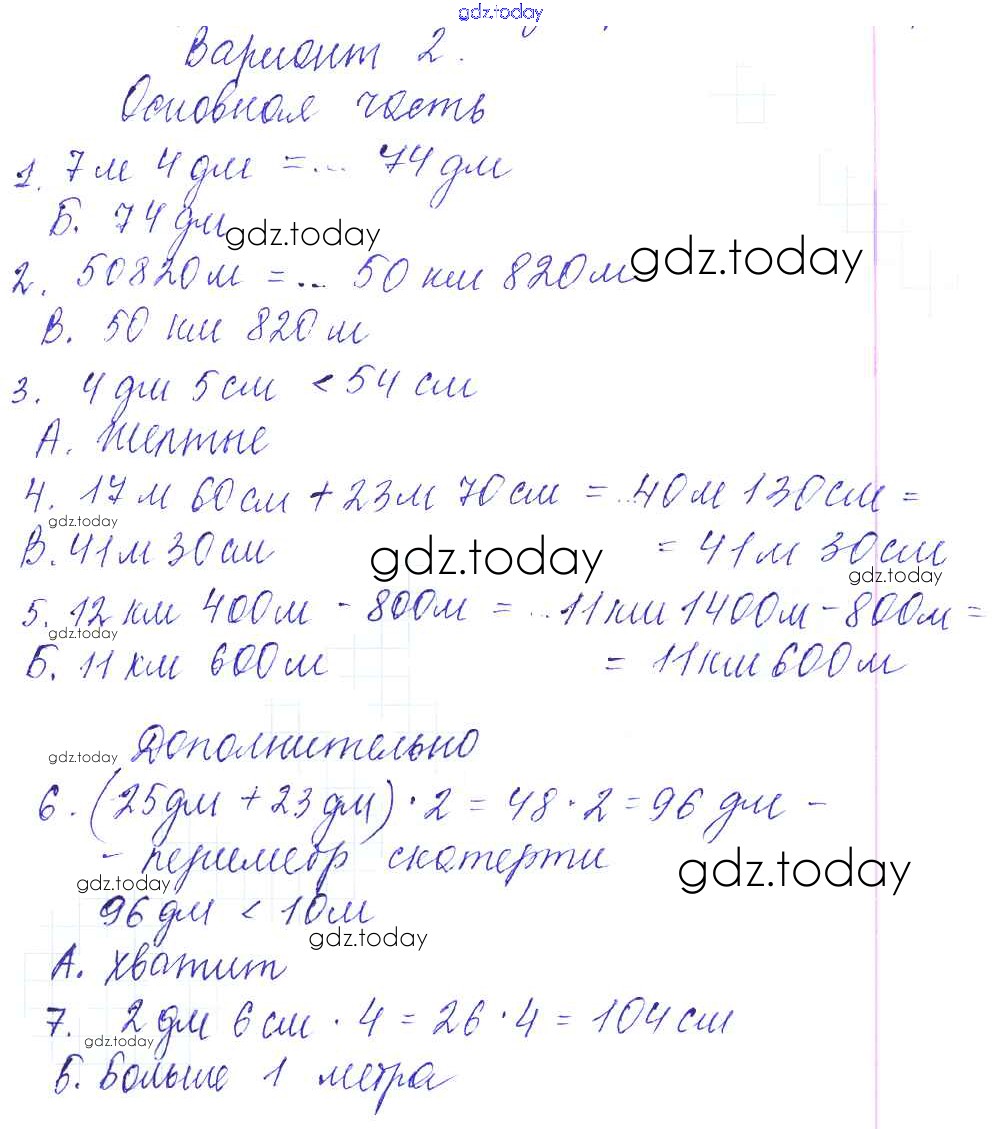 gdz.today
Вариант 2.
Основная часть
1. 7 м 4 дм = ... 74 дм
Б. 74 дм
gdz.today
gdz.today
2. 50820 м = ... 50 км 820 м
В. 50 км 820 м
3. 4 дм 5 см < 54 см
А. Желтые
4. 17 м 60 см + 23 м 70 см = ...40 м 130 см =
gdz.today
В. 41 м 30 см = 41 м 30 см
gdz.today
gdz.today
5. 12 км 400 м - 800 м = ...11 км 1400 м - 800 м =
gdz.today
Б. 11 км 600 м = 11 км 600 м
gdz.today
Дополнительно
6. (25 дм + 23 дм) · 2 = 48 · 2 = 96 дм -
- периметр скатерти
gdz.today
gdz.today
96 дм < 10 м
gdz.today
А. хватит
7. 2 дм 6 см · 4 = 26 · 4 = 104 см
gdz.today
Б. Больше 1 метра